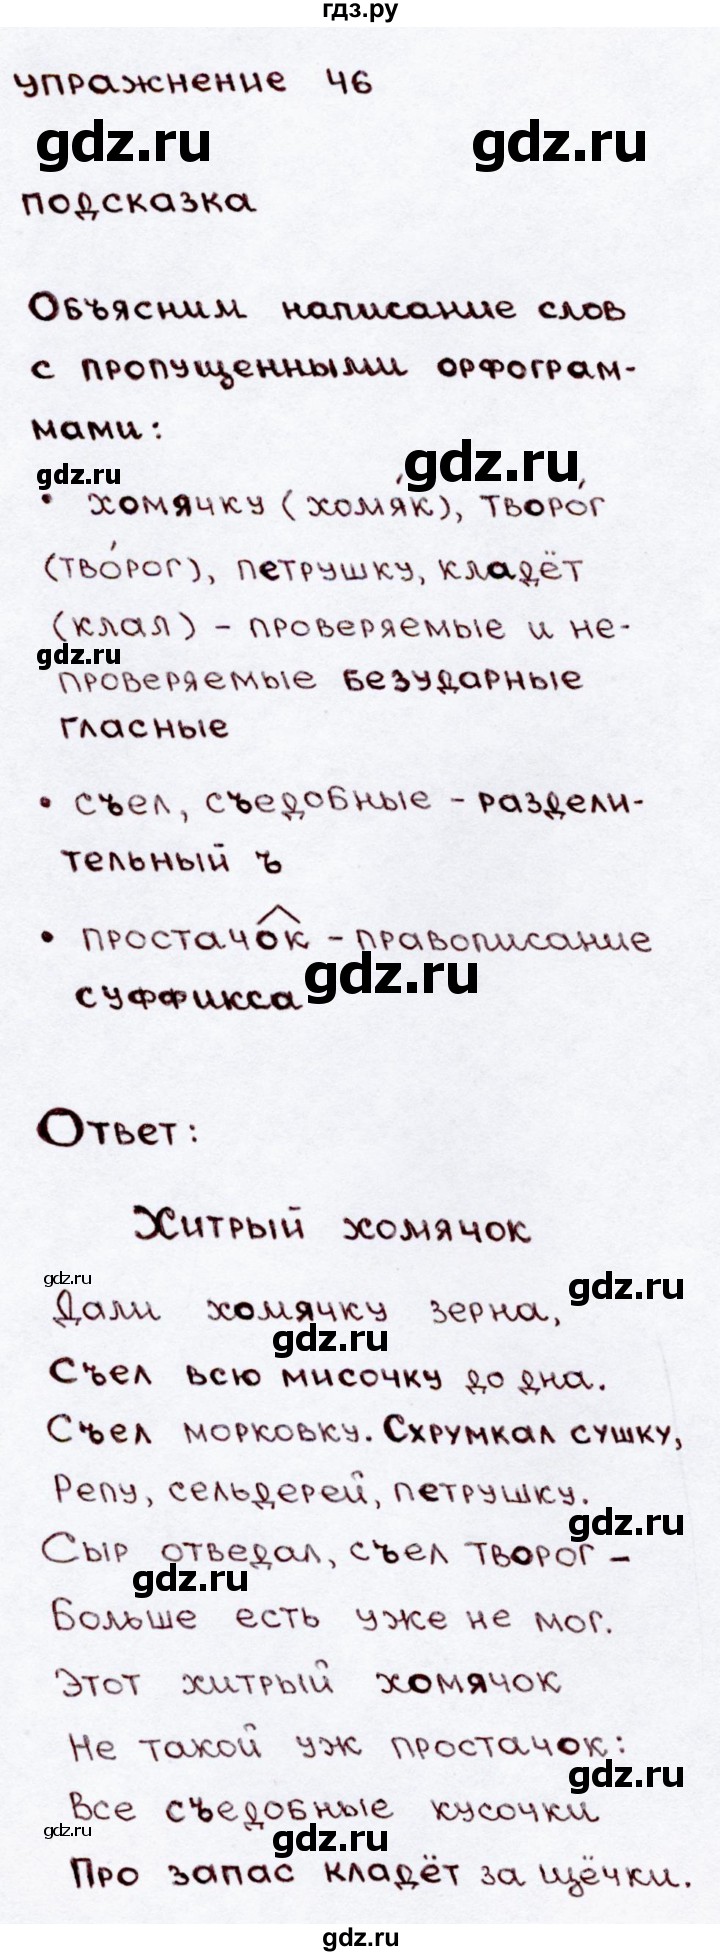 гдз.ру
упражнение 46
gdz.ru gdz.ru
подсказка
Объясним написание слов
с пропущенными орфограм-
мами:
gdz.ru gdz.ru
• хомячку (хомяк), творог
(творог), петрушку, кладёт
(клал) – проверяемые и не-
gdz.ru
проверяемые безударные
гласные
• съел, съедобные – раздели-
тельный ъ
• простачок – правописание
gdz.ru
суффикса
Ответ:
Хитрый хомячок
gdz.ru gdz.ru
Дали хомячку зерна,
gdz.ru
Съел всю мисочку до дна.
Съел морковку. Схрумкал сушку,
Репу, сельдерей, петрушку.
gdz.ru
Сыр отведал, съел творог –
gdz.ru
Больше есть уже не мог.
Этот хитрый хомячок
Не такой уж простачок:
gdz.ru
Все съедобные кусочки
gdz.ru gdz.ru
Про запас кладёт за щёчки.
gdz.ru